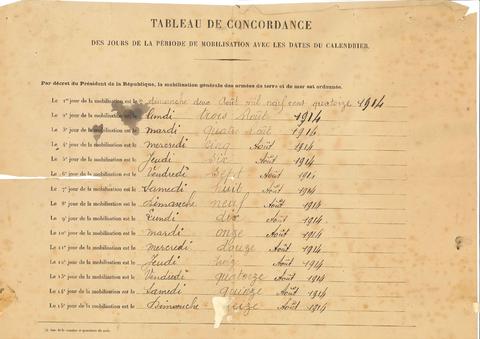 TABLEAU DE CONCORDANCE
DES JOURS DE LA PÉRIODE DE MOBILISATION AVEC LES DATES DU CALENDRIER.
Par décret du Président de la République, la mobilisation générale des armées de terre et de mer est ordonnée.
Le 1er jour de la mobilisation est le dimanche deux Août mil neuf cent quatorze 1914
Le 2e jour de la mobilisation est le lundi trois Août 1914
Le 3e jour de la mobilisation est le mardi quatre août 1914
Le 4e jour de la mobilisation est le mercredi cinq Août 1914
Le 5e jour de la mobilisation est le Jeudi Six Août 1914
Le 6e jour de la mobilisation est le Vendredi Sept Août 1914
Le 7e jour de la mobilisation est le Samedi huit Août 1914
Le 8e jour de la mobilisation est le Dimanche neuf Août 1914
Le 9e jour de la mobilisation est le Lundi dix Août 1914
Le 10e jour de la mobilisation est le Mardi onze Août 1914
Le 11e jour de la mobilisation est le Mercredi douze Août 1914
Le 12e jour de la mobilisation est le Jeudi Août 1914
Le 13e jour de la mobilisation est le Vendredi quatorze Août 1914
Le 14e jour de la mobilisation est le Samedi quinze Août 1914
Le 15e jour de la mobilisation est le Dimanche seize Août 1914